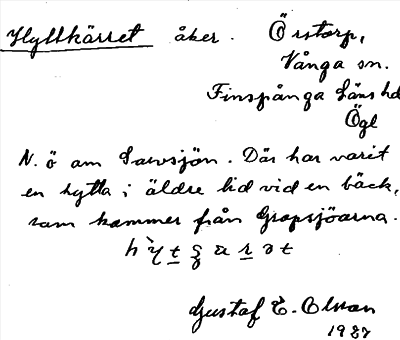 Hyttkärret åker. Örstorp,
Vånga sn.
Finspånga läns hd
Ögl
N. ö om . Där har varit
en hytta i äldre tid vid en bäck,
som kommer från Gropsjöarna.
Gustaf E. Olsson
1927